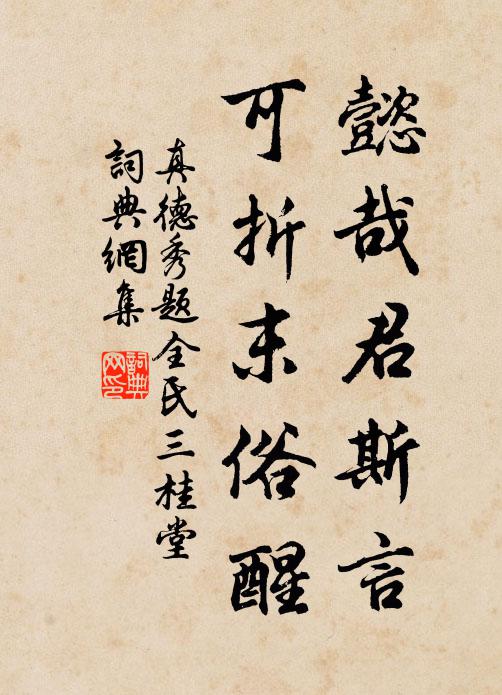 懿哉君斯言
可折末俗醒
真德秀题全氏三桂堂
詞典網集
詞典
网印